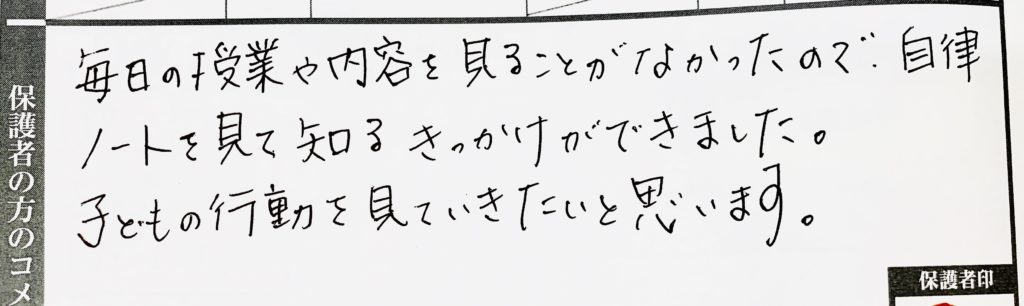 保護者の方のコメ
毎日の授業や内容を見ることがなかったので、自律
ノートを見て知るきっかけができました。
子どもの行動を見ていきたいと思います。
保護者印